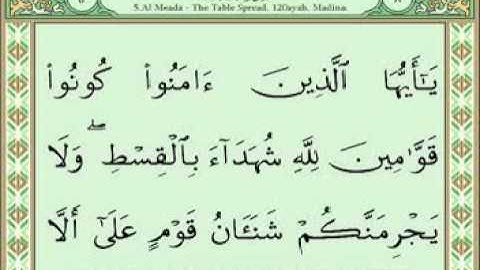 5.Al Meada - The Table Spread, 120ayah, Madina
يَـٰٓأَيُّهَا ٱلَّذِينَ ءَامَنُوا۟ كُونُوا۟
قَوَّٰمِينَ لِلَّهِ شُهَدَآءَ بِٱلْقِسْطِ ۖ وَلَا
يَجْرِمَنَّكُمْ شَنَـَٔانُ قَوْمٍ عَلَىٰٓ أَلَّا